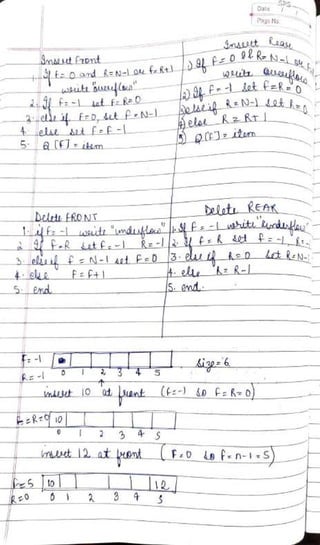 Date
Page No.
Insert Front
1. If F = 0 and R=N-1 or F=R+1
write "overflow"
2. If F = -1 set F=R=0
3. else if F=0, set F=N-1
4. else set F=F-1
5. Q[F] = item
Insert Rear
1) If F=0 & R=N-1 or
write overflow
2) If F=-1 set F=R=0
3) else if R=N-1 set R=0
4) else R=R+1
5) Q[F] = item
Delete FRONT
1. if F=-1 write "underflow"
2. If F=R set F=-1 R=-1
3. else if F=N-1 set F=0
4. else F=F+1
5. end
Delete REAR
1. If F=-1 write "underflow"
2. if F=R set F=-1, R=-1
3. else if R=0 set R=N-1
4. else R=R-1
5. end.
F=-1
R=-1 0 1 2 3 4 5 Size=6
insert 10 at front (F=-1 so F=R=0)
F=R=0 10
0 1 2 3 4 5
insert 12 at front (F=0 so F=n-1=5)
F=5 10 12
R=0 0 1 2 3 4 5